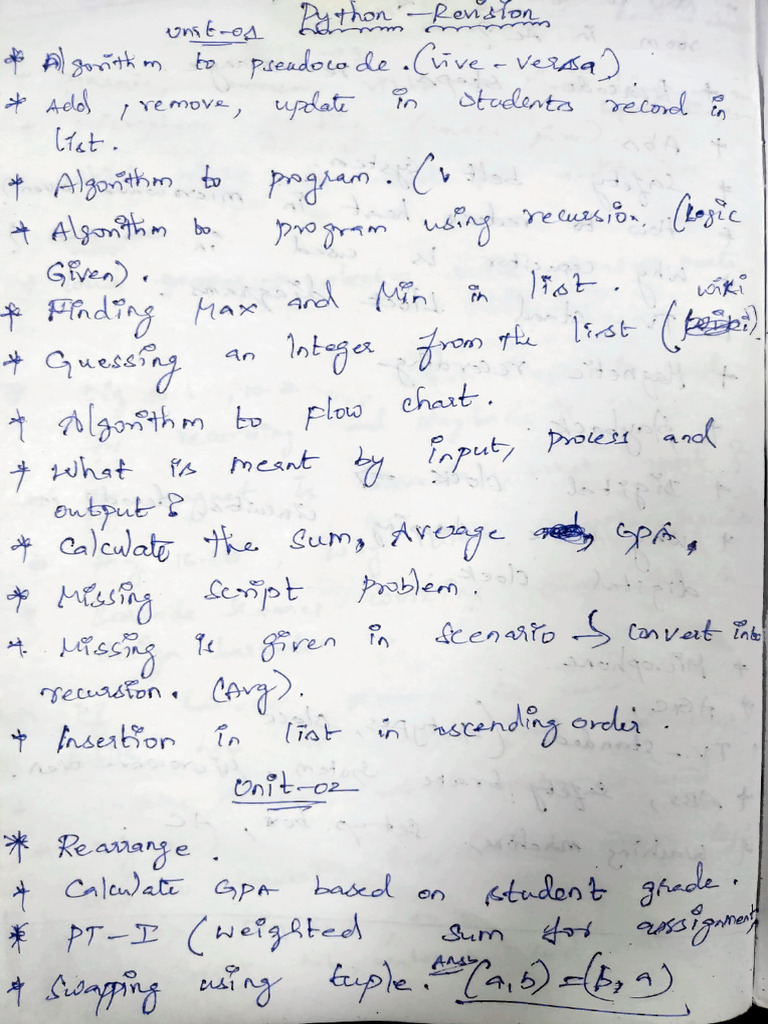 Python - Revision
Unit-01
* Algorithm to pseudocode. (vive-versa)
* Add, remove, update in students record in
list.
* Algorithm to program. (
* Algorithm to program using recursion. (Logic
Given).
* Finding Max and Min in list.
wiki
* Guessing an Integer from the list ( )
* Algorithm to flow chart.
* What is meant by input, process and
output?
* Calculate the Sum, Average , GPA.
* Missing Script Problem.
* Missing is given in scenario → convert into
recursion. (Avg).
* Insertion in list in ascending order.
Unit-02
* Rearrange.
* Calculate GPA based on student grade.
* PT-I (weighted sum for assignment
* Swapping using tuple. Ans (a,b) = (b, a)